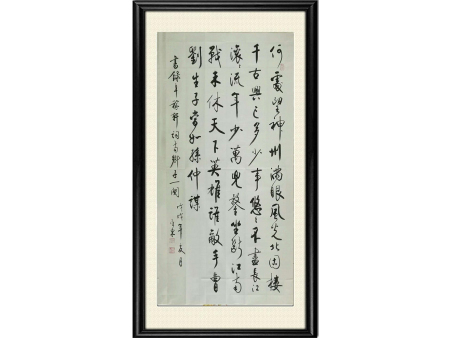 何處望神州滿眼風光北固樓
千古興亡多少事悠〻不盡長江
滾流年少萬兜鍪坐斷江南
戰未休天下英雄誰敵手曹
劉生子當如孫仲謀
書錄辛稼軒詞南鄉子一闋 戊戌年夏月